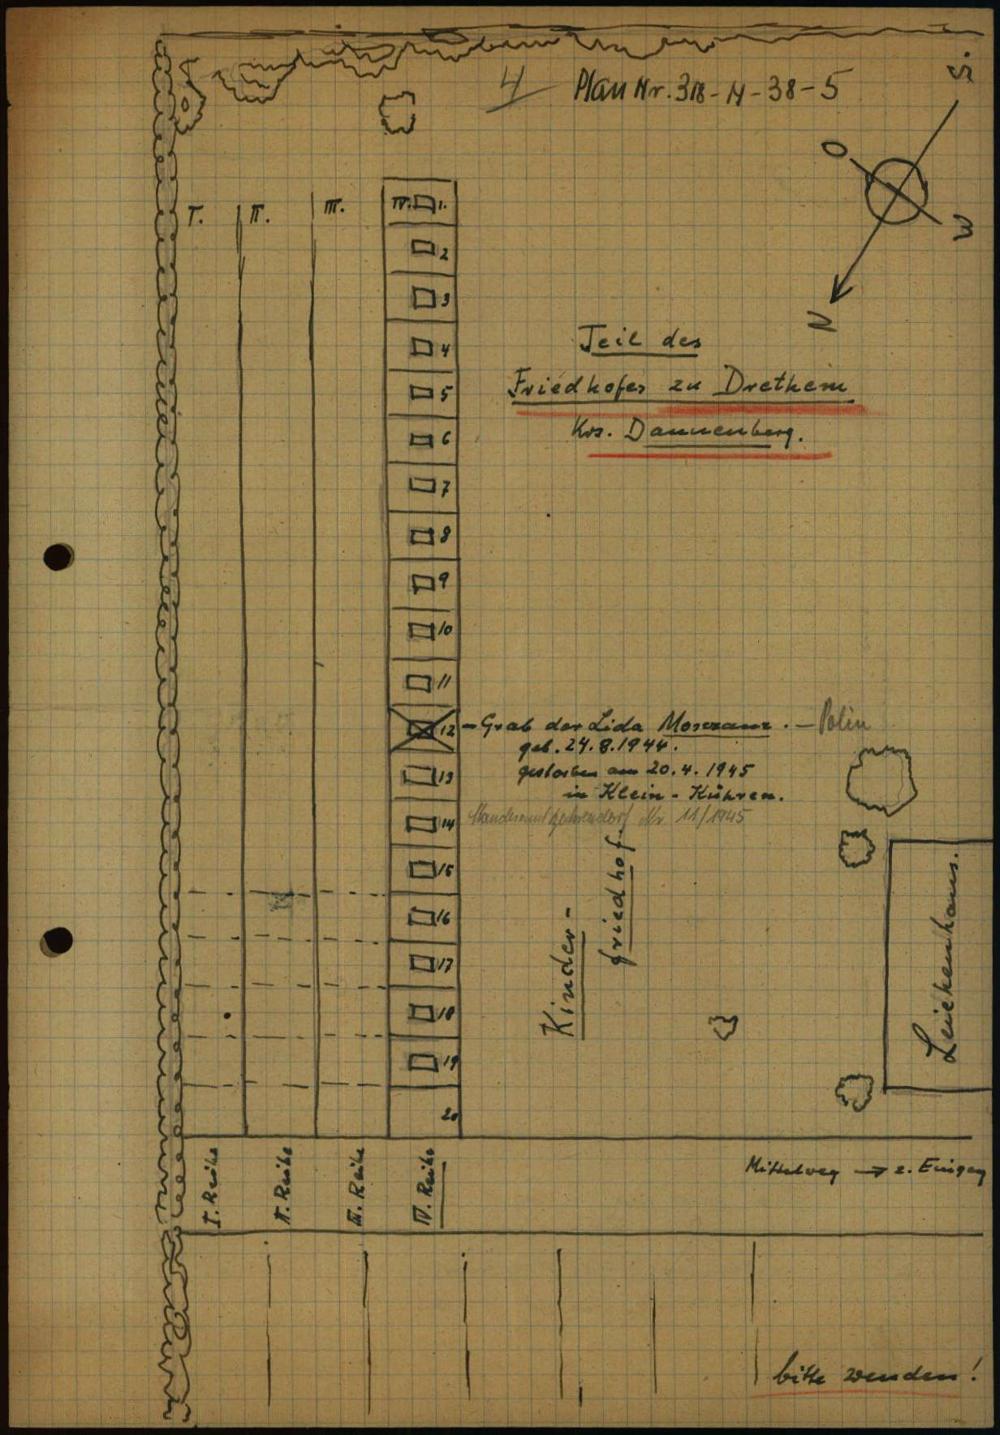 4 Plan Nr. 318-N-38-5
S.
O
W
N
I. II. III. IV. 1.
2
3
4
5
6
7
8
9
10
11
12
13
14
15
16
17
18
19
20
Teil des
Friedhofes zu Drethem
Krs. Dannenberg.
- Grab der Lida - Polin
geb. 24.8.1944.
gestorben am 20.4.1945
in Klein-Kühren.
Standesamt Nr 11/1945
Kinder-
friedhof.
Leichenhaus.
I. Reihe
II. Reihe
III. Reihe
IV. Reihe
Mittelweg → z. Eingang
bitte wenden!